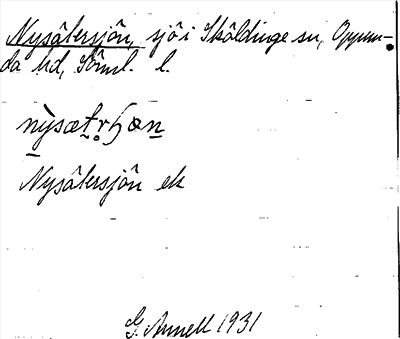 Nysätersjön, sjö i Sköldinge sn, Oppun-
da hd, Söml. l.
nỳsætr̥ɧøn
Nysätersjön ek
G. Annell 1931